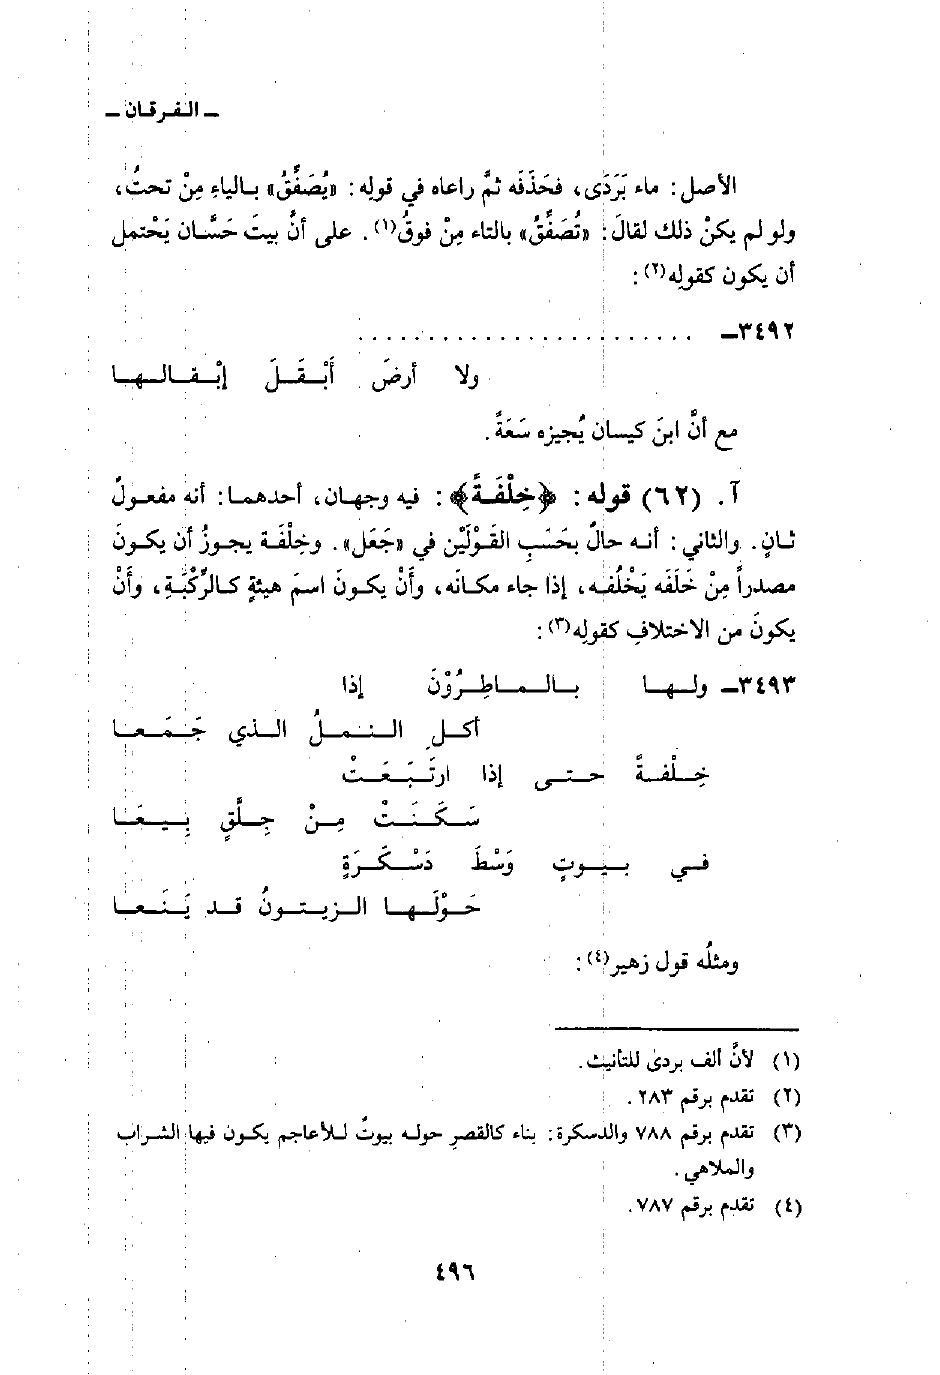 ـ الفرقان ـ
الأصل: ماء بَرَدَى، فحَذَفه ثمَّ راعاه في قوله: «يُصَفَّقُ» بالياءِ مِنْ تحتُ،
ولو لم يكنْ ذلك لقالَ: «تُصَفَّقُ» بالتاء مِنْ فوقُ(١). على أنَّ بيتَ حَسَّان يَحْتمل
أن يكون كقولِه(٢):
٣٤٩٢ـ . . . . . . . . . . . . . . . . . . . . . . .
ولا أرضَ أَبْقَلَ إبْقالها
مع أنَّ ابنَ كيسان يُجيزه سَعَةً.
آ. (٦٢) قوله: ﴿خِلْفَةً﴾: فيه وجهان، أحدهما: أنه مفعولٌ
ثانٍ. والثاني: أنه حالٌ بحَسَبِ القَوْلَيْن في «جَعَل». وخِلْفَة يجوزُ أن يكونَ
مصدراً مِنْ خَلَفَه يَخْلُفه، إذا جاء مكانَه، وأَنْ يكونَ اسمَ هيئةٍ كالرِّكْبَةِ، وأَنْ
يكونَ من الاختلافِ كقولِه(٣):
٣٤٩٣ـ ولها بالماطِرُوْنَ إذا
أكل النملُ الذي جَمَعا
خِلْفةً حتى إذا ارتَبَعَتْ
سَكَنَتْ مِنْ جِلَّقٍ بِيعَا
في بيوتٍ وَسْطَ دَسْكَرَةٍ
حَوْلَها الزيتونُ قد يَنَعا
ومثلُه قول زهير(٤):
(١) لأنَّ ألف بردى للتأنيث.
(٢) تقدم برقم ٢٨٣.
(٣) تقدم برقم ٧٨٨ والدسكرة: بناء كالقصرِ حوله بيوتٌ للأعاجم يكون فيها الشراب
والملاهي.
(٤) تقدم برقم ٧٨٧.
٤٩٦